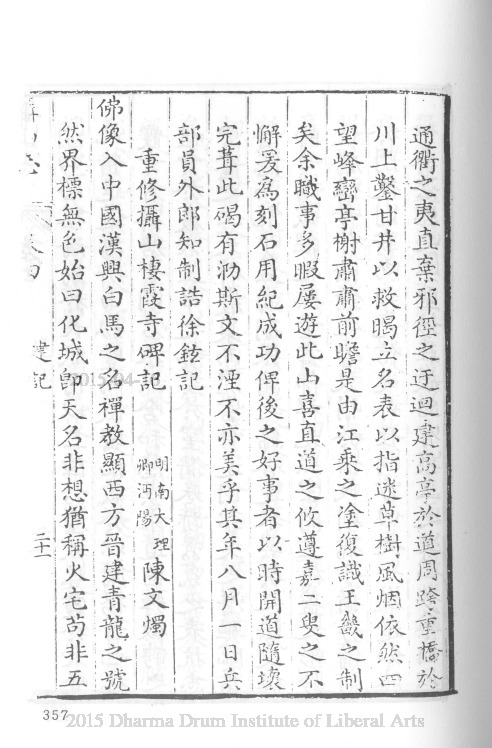 通衢之夷直棄邪徑之迂迴建高亭於道周跨重橋於
川上鑿甘井以救暍立名表以指迷草樹風烟依然四
望峰巒亭榭肅肅前瞻是由江乘之塗復識王畿之制
矣余職事多暇屢遊此山喜直道之攸遵嘉二叟之不
懈爰為刻石用紀成功俾後之好事者以時開道隨壞
完葺此碣有泐斯文不湮不亦美乎其年八月一日兵
部員外郎知制誥徐鉉記
重修攝山棲霞寺碑記 明南大理卿沔陽 陳文燭
佛像入中國漢興白馬之名禪教顯西方晉建青龍之號
然界標無色始曰化城卽天名非想猶稱火宅茍非五
卷四
建記
二十一
357
2015 Dharma Drum Institute of Liberal Arts